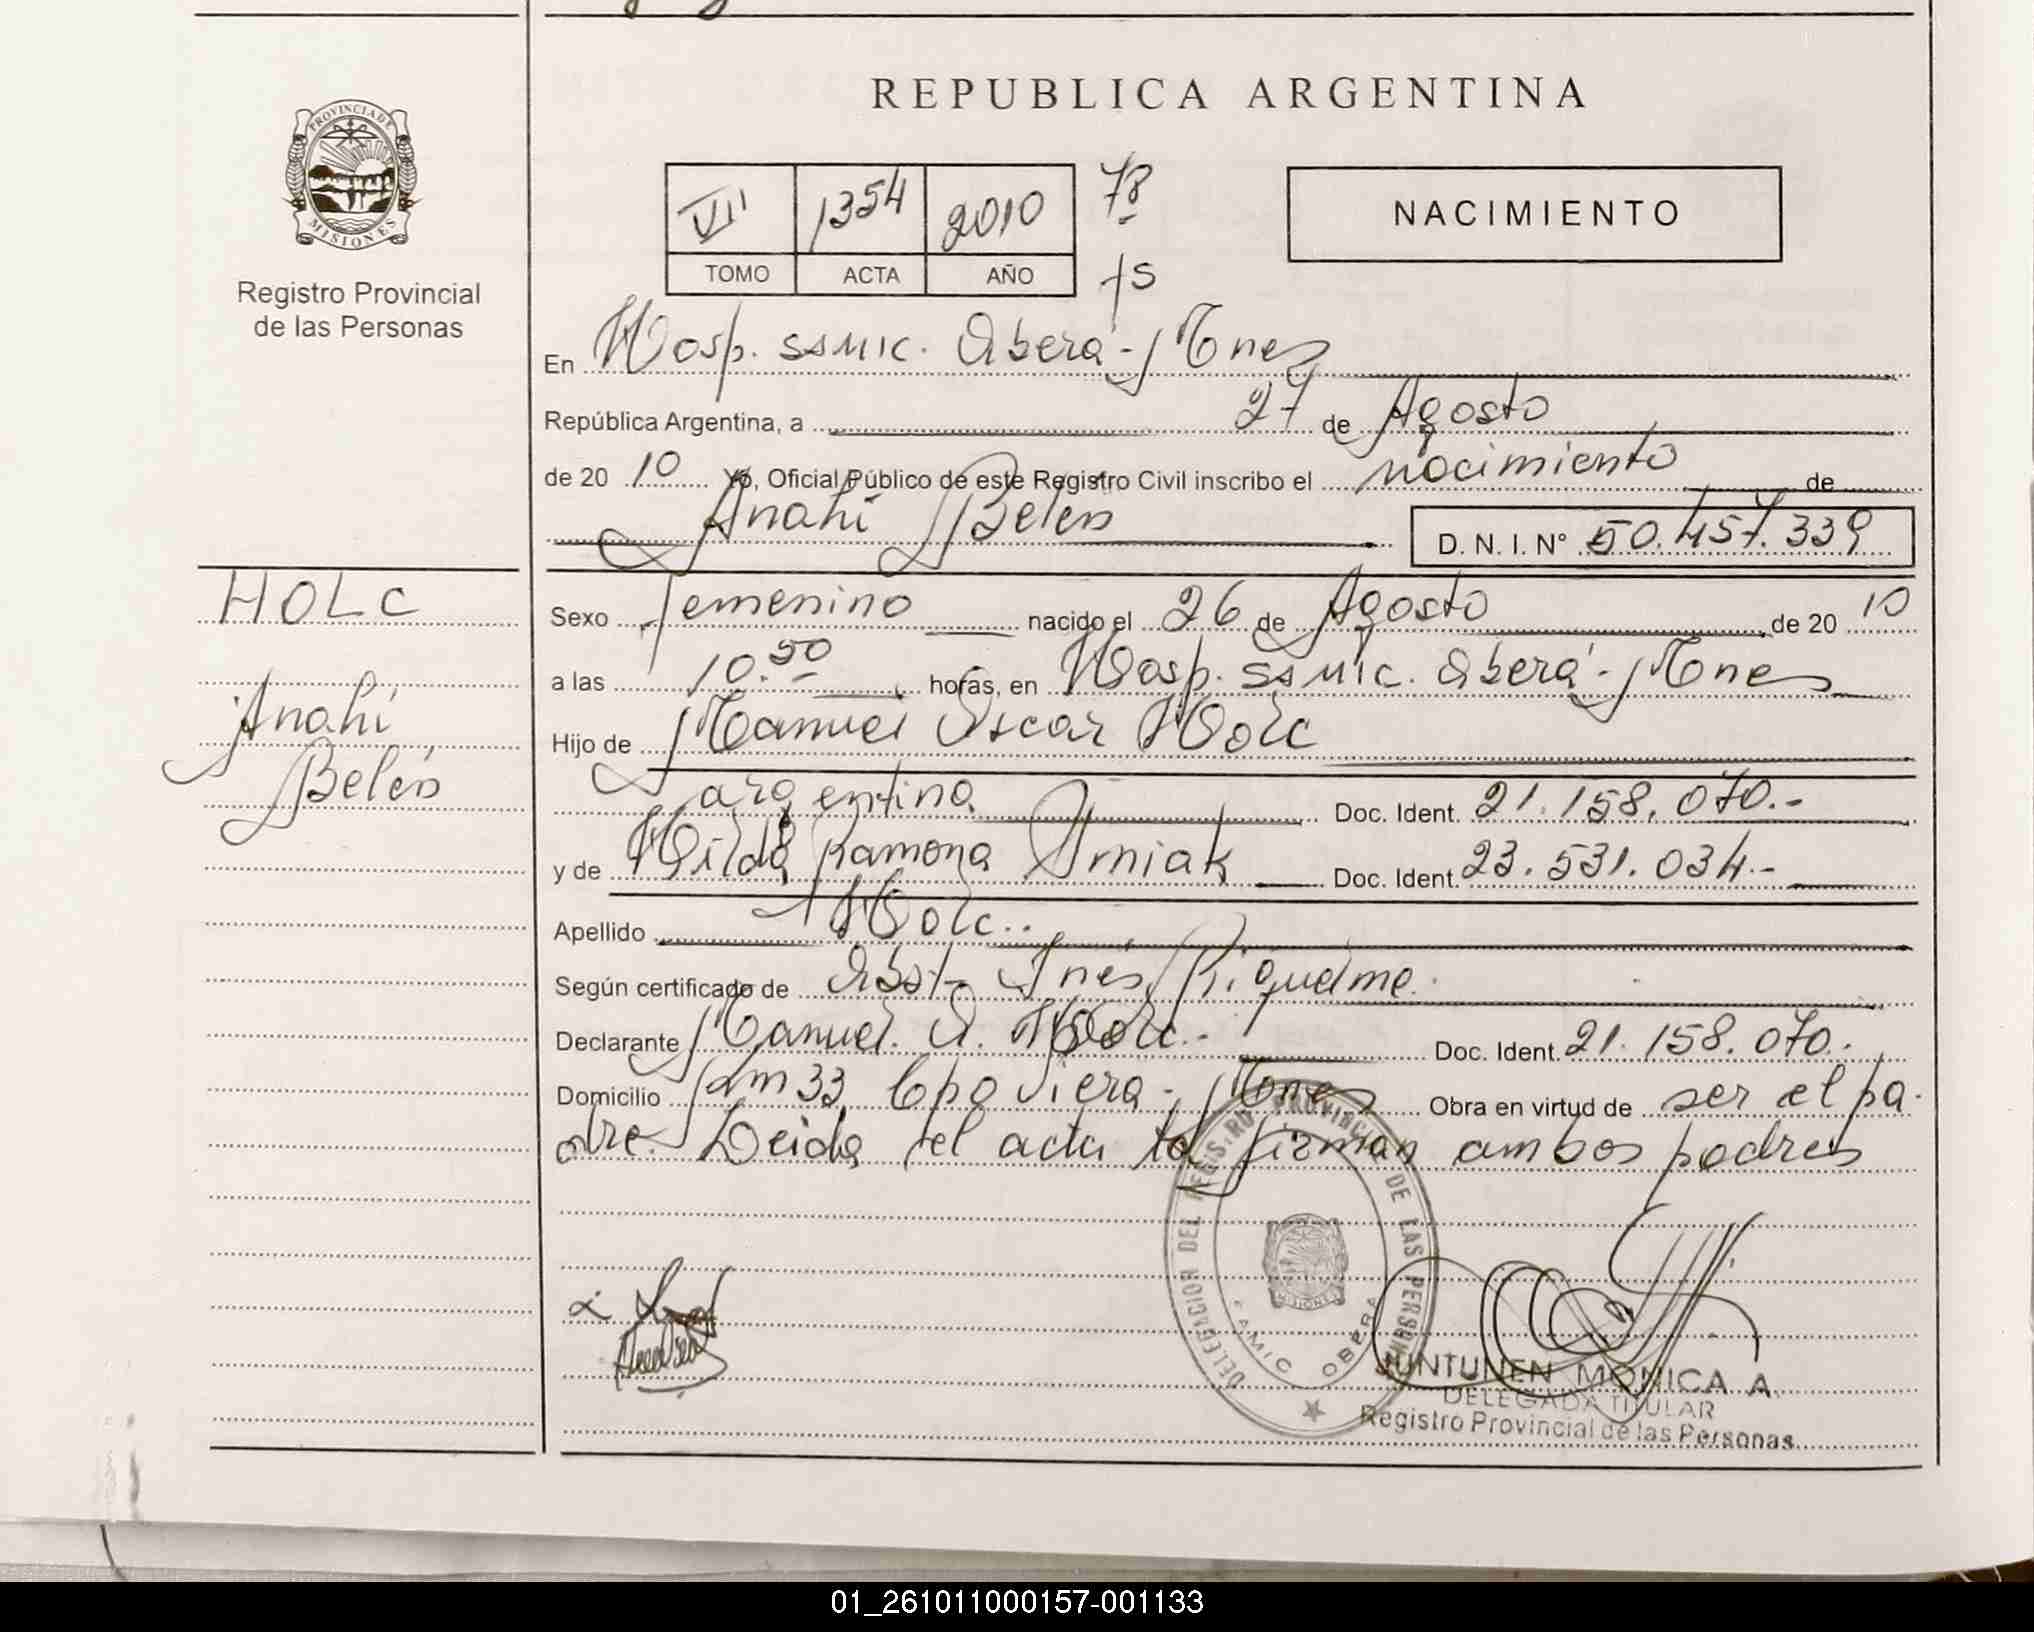 REPUBLICA ARGENTINA
PROVINCIA DE
MISIONES
Registro Provincial
de las Personas
VII 1354 2010 78
TOMO ACTA AÑO fs
NACIMIENTO
En Hosp. SSMIC. Oberá - Mnes
República Argentina, a 27 de Agosto
de 20 10 Yo, Oficial Público de este Registro Civil inscribo el nacimiento de
Anahí Belén D. N. I. N° 50.457.339
HOLC
Anahí
Belén
Sexo femenino nacido el 26 de Agosto de 20 10
a las 10.50 horas, en Hosp. SSMIC. Oberá - Mnes
Hijo de Manuel Oscar Holc
argentino Doc. Ident. 21.158.070.-
y de Hilda Ramona Doc. Ident. 23.531.034.-
Apellido Holc..
Según certificado de Obst. Inés Riquelme.
Declarante Manuel. O. Holc.. Doc. Ident. 21.158.070..
Domicilio Km 33 Cpo Viera - Mnes Obra en virtud de ser el pa-
dre. Leida el acta la firman ambos padres
DELEGACION DEL REGISTRO PROVINCIAL DE LAS PERSONAS
SAMIC OBERA
MISIONES
JUNTUNEN MONICA A.
DELEGADA TITULAR
Registro Provincial de las Personas
01_261011000157-001133